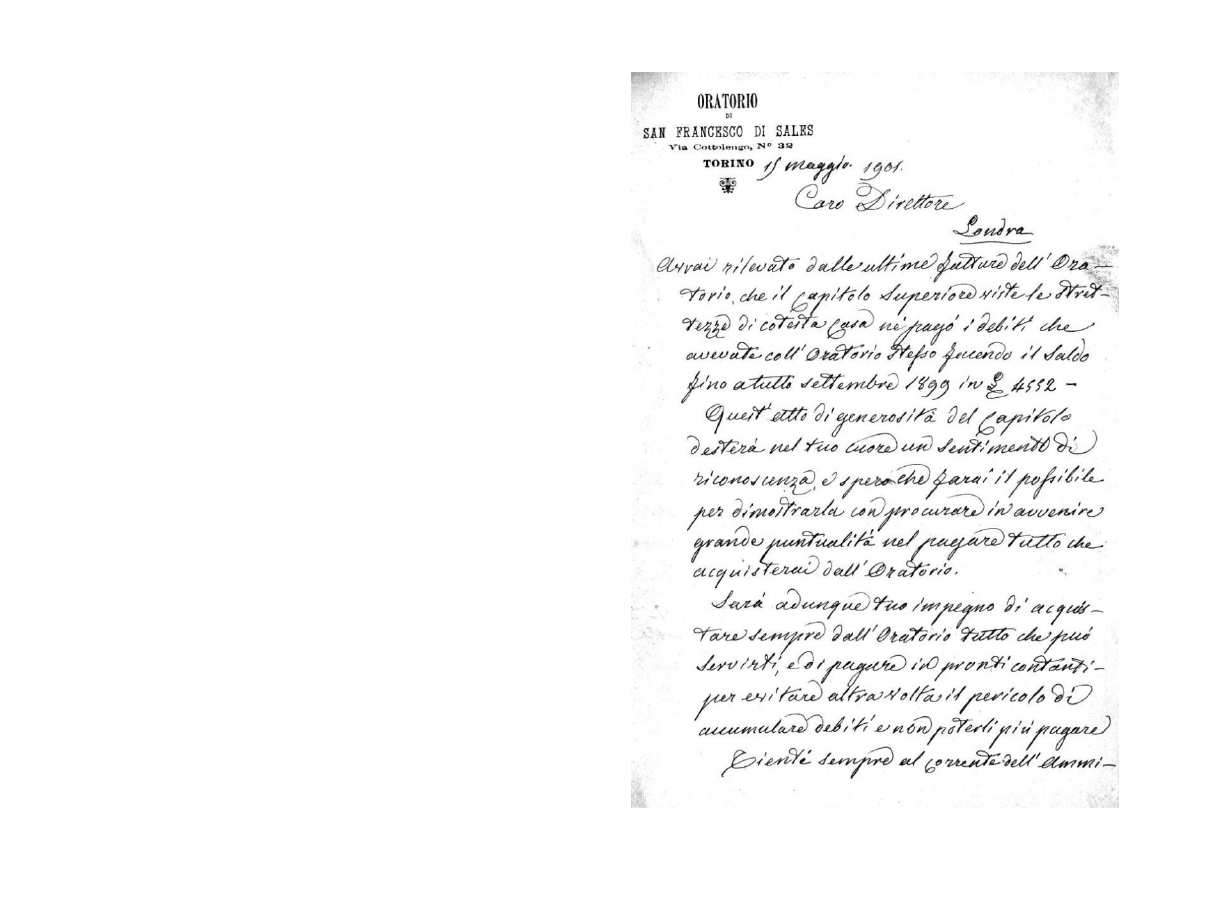 ORATORIO
DI
SAN FRANCESCO DI SALES
Via Cottolengo, Nº 32
TORINO 15 maggio. 1901.
Caro Direttore
Londra
Avrai rilevato dalle ultime fatture dell' Ora-
torio, che il Capitolo Superiore viste le stret-
tezze di cotesta Casa ne pagó i debiti che
avevate coll' Oratorio stesso facendo il saldo
fino a tutto settembre 1899 in £ 4552 -
Quest' atto di generositá del Capitolo
desterá nel tuo cuore un sentimento di
riconoscenza, e spero che farai il possibile
per dimostrarla con procurare in avvenire
grande puntualitá nel pagare tutto che
acquisterai dall' Oratorio.
Sará adunque tuo impegno di acquis-
tare sempre dall' Oratorio tutto che puó
servirti, e di pagare in pronti contanti-
per evitare altra volta il pericolo di
accumulare debiti e non poterli piú pagare
Tienti sempre al corrente dell' Ammi-